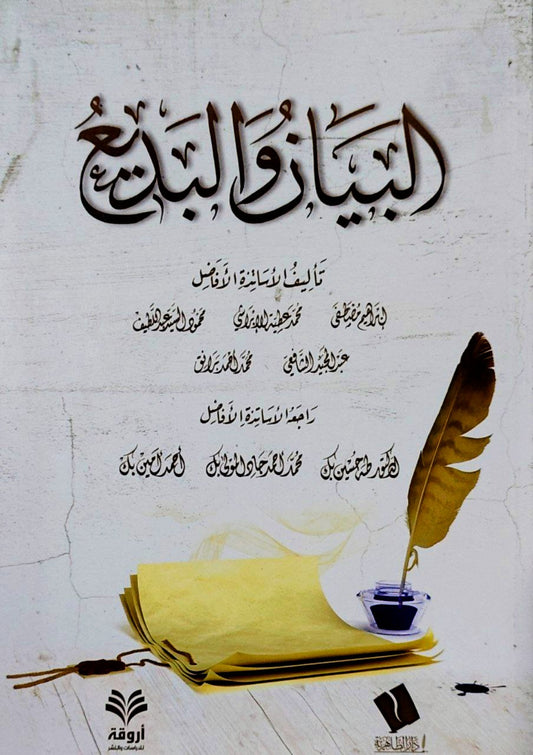 البَيَانُ وَالبَدِيعُ
تَأليفُ الأسَاتِذَةِ الأفَاضِل
إبراهيم مُصْطَفَى محمد عطية الإبراشي محمود السيد عبد اللطيف
عبد المجيد الشافعي محمد أحمد برانق
رَاجَعَهُ الأسَاتِذَة الأَفَاضِل
الدكتور طه حسين بك محمد أحمد جاد المولى بك أحمد أمين بك
أروقة
للدراسات والنشر
دار الظاهرية